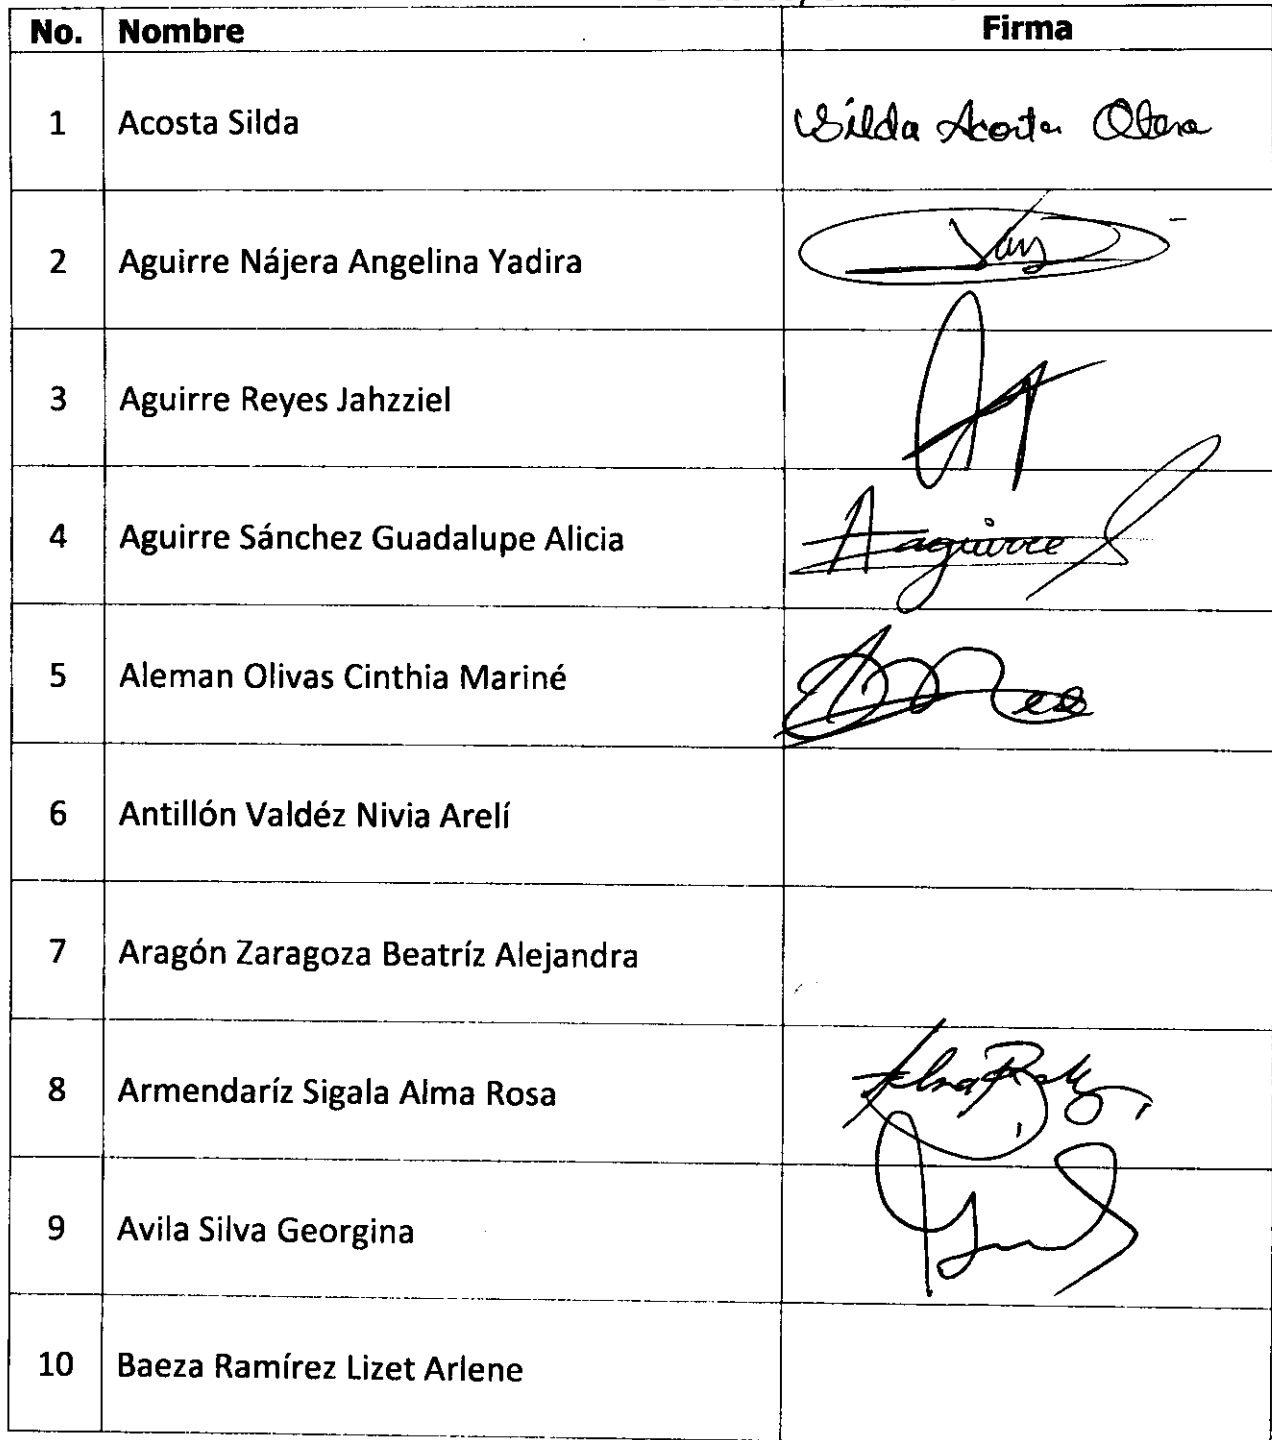 No. Nombre Firma
1 Acosta Silda Silda Acosta
2 Aguirre Nájera Angelina Yadira
3 Aguirre Reyes Jahzziel
4 Aguirre Sánchez Guadalupe Alicia Aaguirre
5 Aleman Olivas Cinthia Mariné
6 Antillón Valdéz Nivia Arelí
7 Aragón Zaragoza Beatríz Alejandra
8 Armendaríz Sigala Alma Rosa
9 Avila Silva Georgina
10 Baeza Ramírez Lizet Arlene